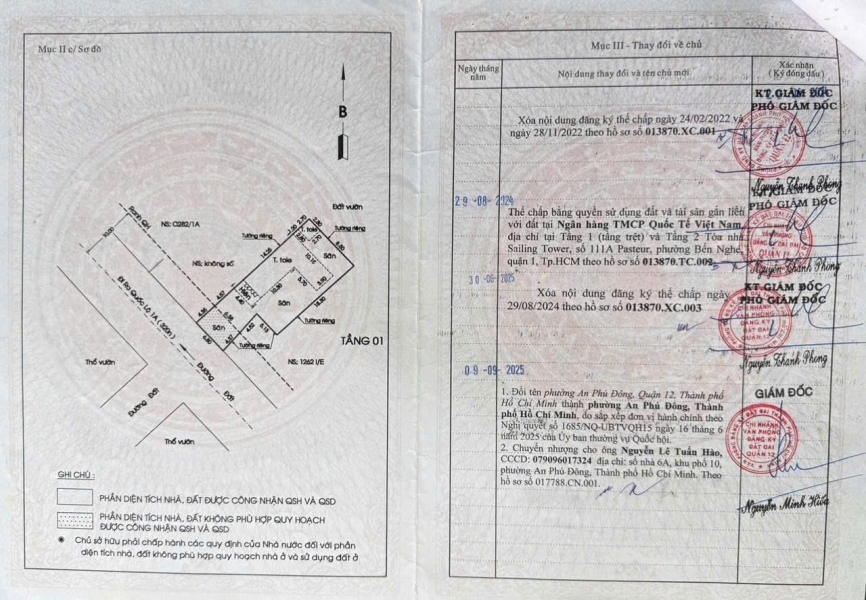 Mục II c/ Sơ đồ
B
Ranh QH
10.00
NS: C282/1A
Đất vườn
Tường riêng
NS: không số
T. tole
T. tole
Sân
Hiên
Sân
Sân
Tường riêng
Tường riêng
TẦNG 01
NS: 1262 I/E
Đi Ra Quốc Lộ 1A ( 520m )
Đường Đất
Đường Đất
Thổ vườn
Thổ vườn
GHI CHÚ :
PHẦN DIỆN TÍCH NHÀ, ĐẤT ĐƯỢC CÔNG NHẬN QSH VÀ QSD
PHẦN DIỆN TÍCH NHÀ, ĐẤT KHÔNG PHÙ HỢP QUY HOẠCH
ĐƯỢC CÔNG NHẬN QSH VÀ QSD
Chủ sở hữu phải chấp hành các quy định của Nhà nước đối với phần
diện tích nhà, đất không phù hợp quy hoạch nhà ở và sử dụng đất ở
Mục III - Thay đổi về chủ
Ngày tháng năm
Nội dung thay đổi và tên chủ mới
Xác nhận
( Ký đóng dấu)
KT.GIÁM ĐỐC
PHÓ GIÁM ĐỐC
Xóa nội dung đăng ký thế chấp ngày 24/02/2022 và
ngày 28/11/2022 theo hồ sơ số 013870.XC.001
Nguyễn Thanh Phong
29-08-2024
KT.GIÁM ĐỐC
PHÓ GIÁM ĐỐC
Thế chấp bằng quyền sử dụng đất và tài sản gắn liền
với đất tại Ngân hàng TMCP Quốc Tế Việt Nam,
địa chỉ tại Tầng 1 (tầng trệt) và Tầng 2 Tòa nhà
Sailing Tower, số 111A Pasteur, phường Bến Nghé,
quận 1, Tp.HCM theo hồ sơ số 013870.TC.002
Nguyễn Thanh Phong
30-06-2025
KT.GIÁM ĐỐC
PHÓ GIÁM ĐỐC
Xóa nội dung đăng ký thế chấp ngày
29/08/2024 theo hồ sơ số 013870.XC.003
CHI NHÁNH
VĂN PHÒNG
ĐĂNG KÝ
ĐẤT ĐAI
QUẬN 12
Nguyễn Thanh Phong
09-09-2025
GIÁM ĐỐC
1. Đổi tên phường An Phú Đông, Quận 12, Thành phố
Hồ Chí Minh thành phường An Phú Đông, Thành
phố Hồ Chí Minh, do sắp xếp đơn vị hành chính theo
Nghị quyết số 1685/NQ-UBTVQH15 ngày 16 tháng 6
năm 2025 của Ủy ban thường vụ Quốc hội.
2. Chuyển nhượng cho ông Nguyễn Lê Tuấn Hào,
CCCD: 079096017324 địa chỉ: số nhà 6A, khu phố 10,
phường An Phú Đông, Thành phố Hồ Chí Minh. Theo
hồ sơ số 017788.CN.001.
CHI NHÁNH
VĂN PHÒNG
ĐĂNG KÝ
ĐẤT ĐAI
QUẬN 12
Nguyễn Minh Hiếu